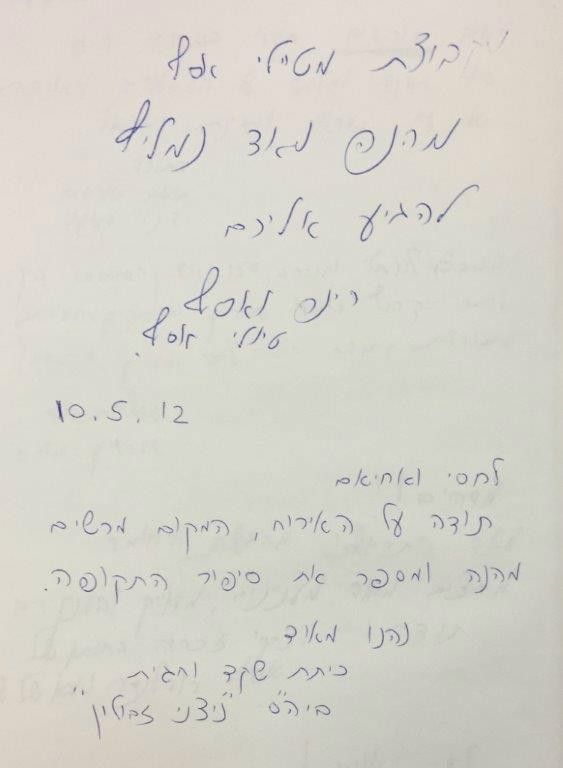 מקבוצת מטיילי אסף
מהנה מאוד נמליץ
להגיע אליכם
רינה ואסף
טיולי אסף.
10.5.12
לחסי ואחיאם
תודה על האירוח, המקום מרשים
מהנה ומספר את סיפור התקופה.
נהנו מאוד
כיתת שקד וחגית
ביה"ס "ניצני זבולון"